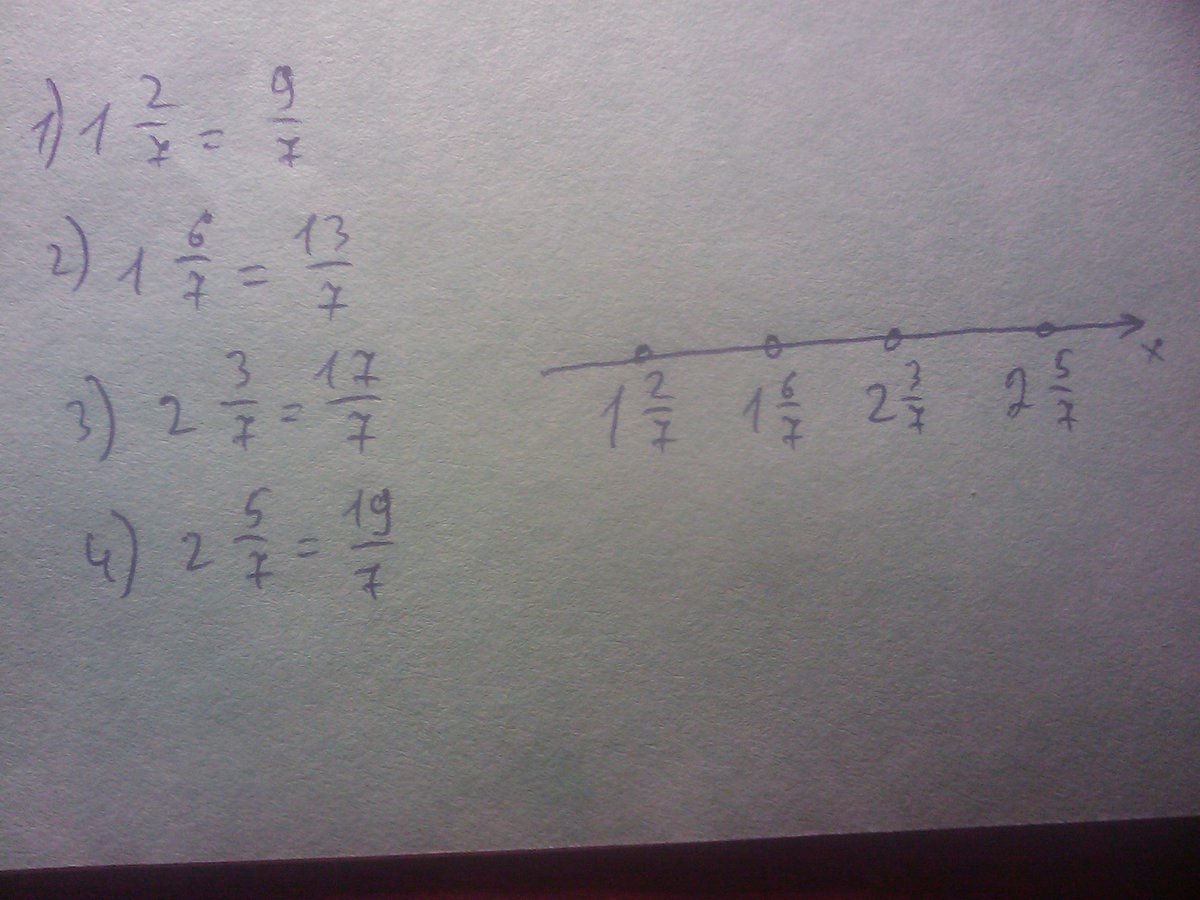 1) 1 2/7 = 9/7
2) 1 6/7 = 13/7
3) 2 3/7 = 17/7
4) 2 5/7 = 19/7
1 2/7 1 6/7 2 3/7 2 5/7 x